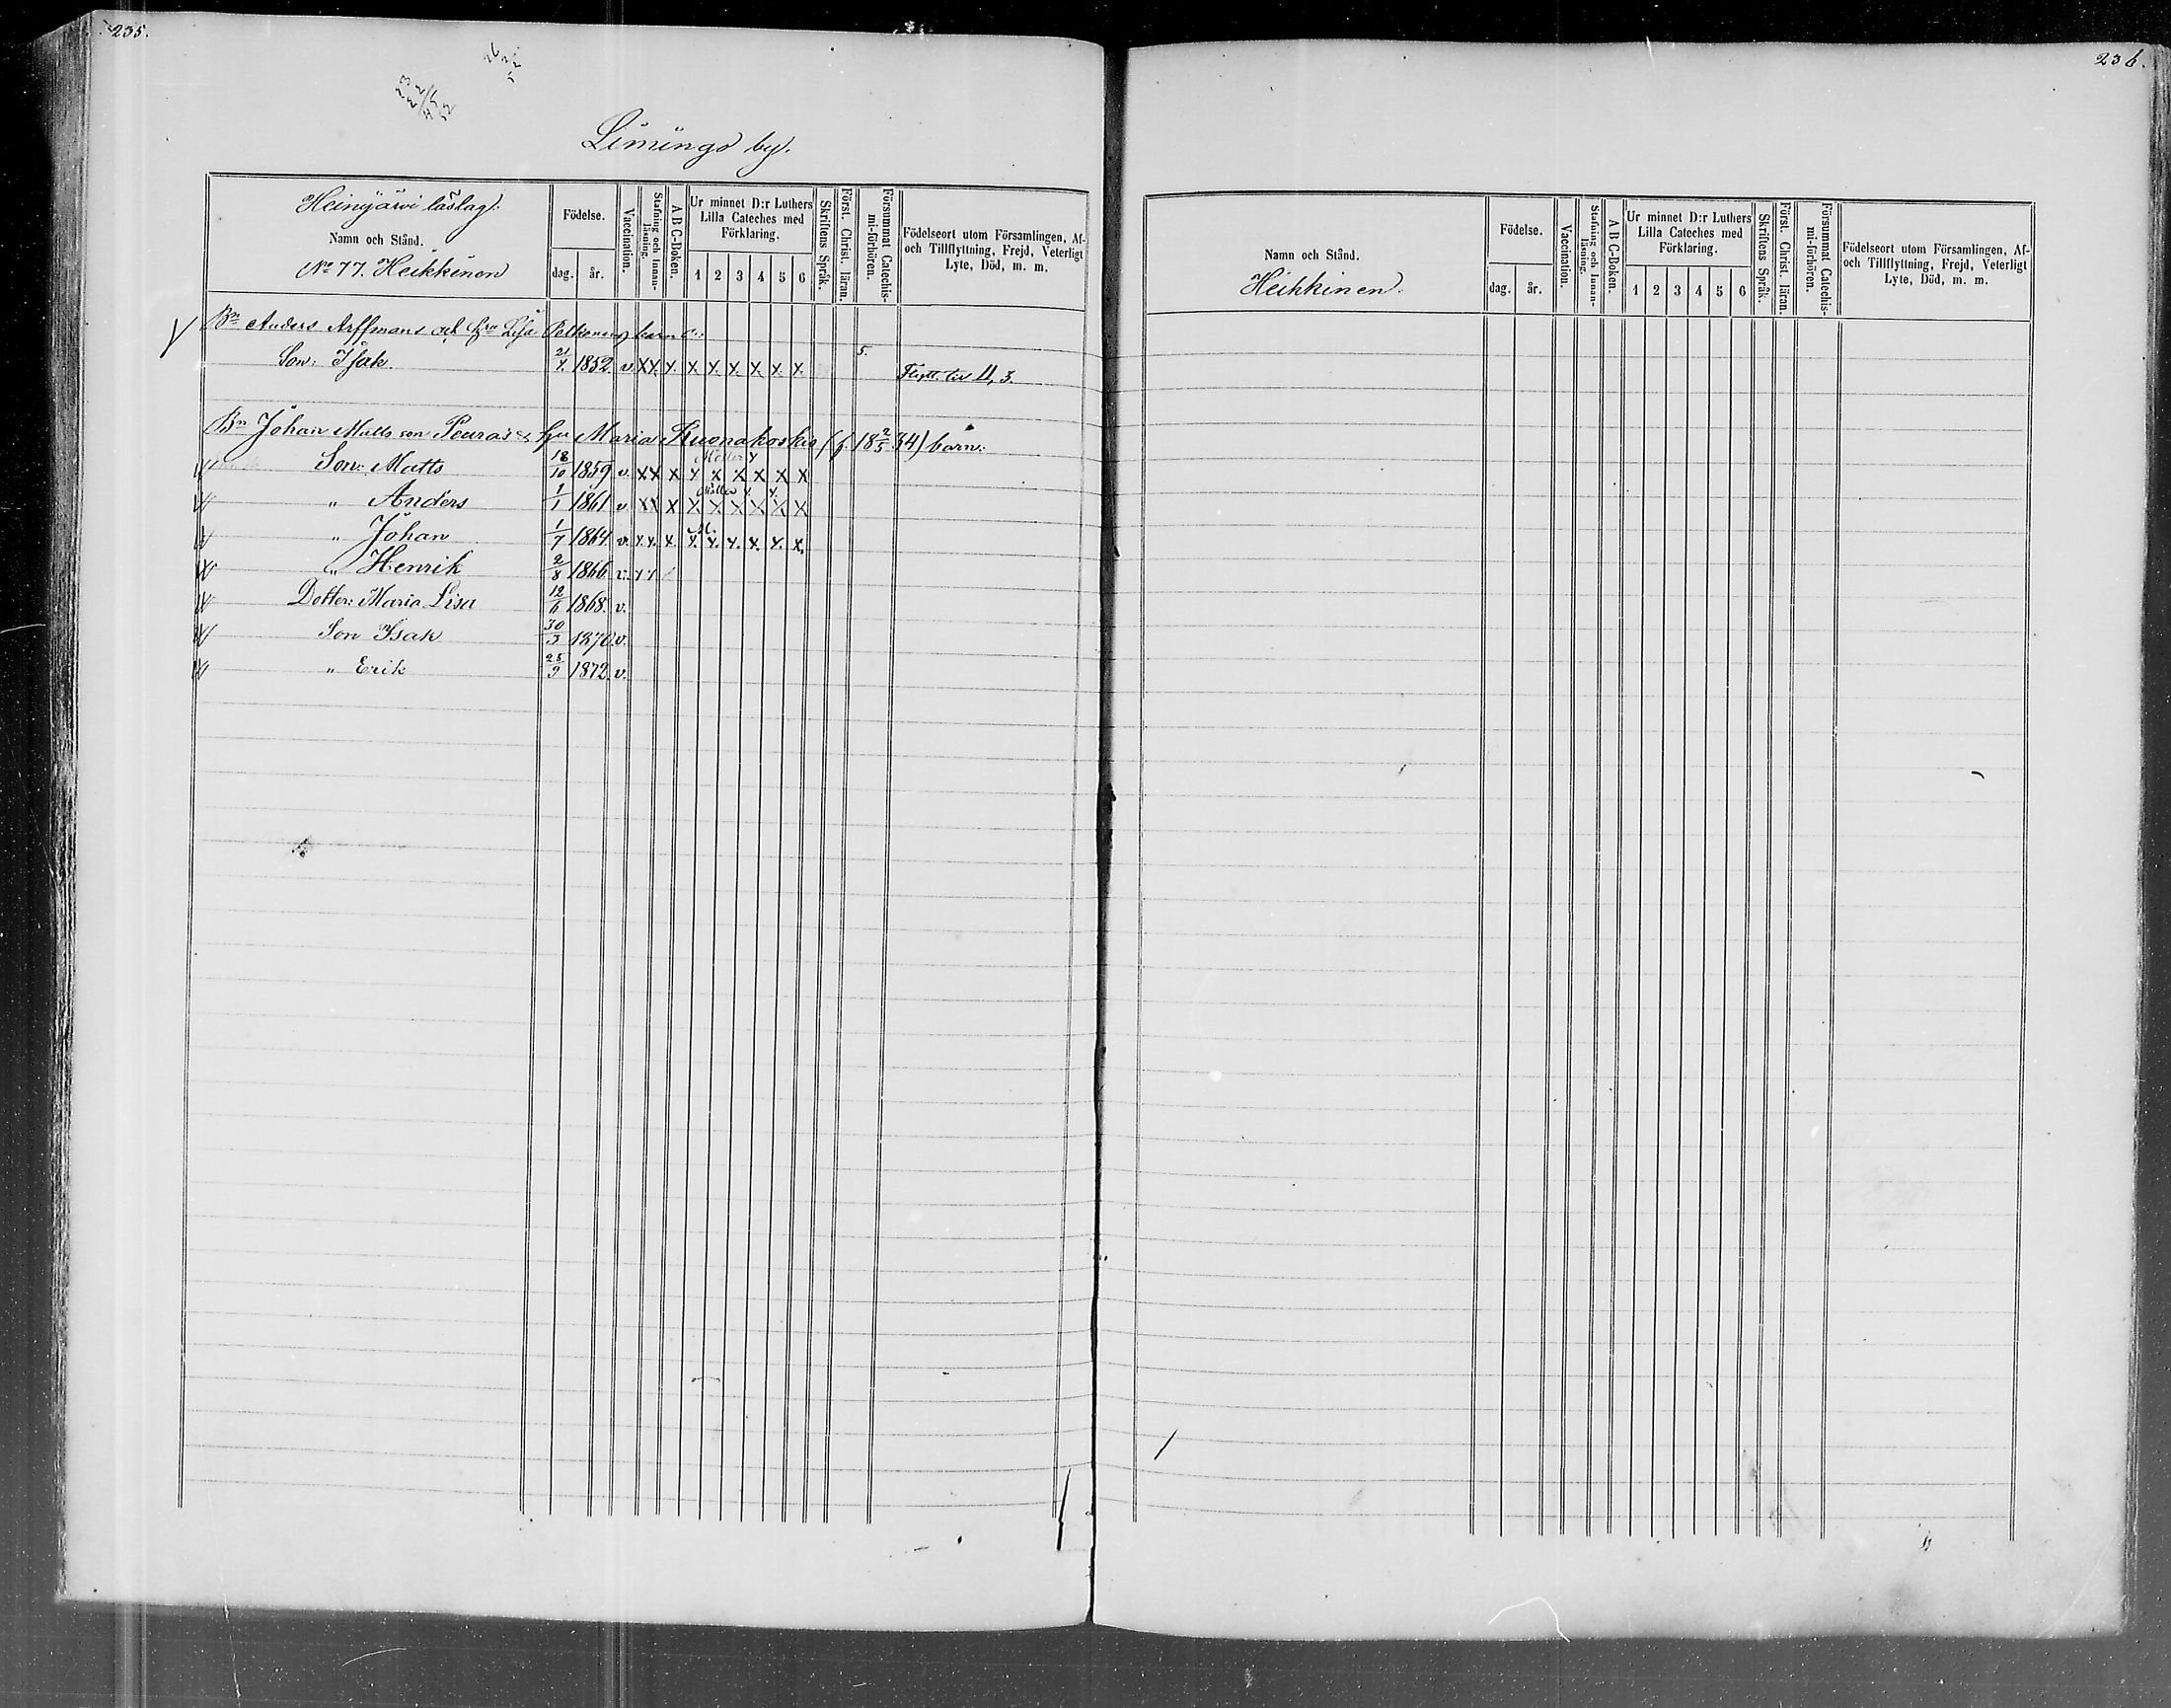 235.
Limingo by.
Heinijärvi läslag.
Namn och Stånd.
No 77. Heikkinen
Födelse.
dag. år.
Vaccination.
Stafning och Innanläsning.
A B C-Boken.
Ur minnet D:r Luthers
Lilla Cateches med
Förklaring.
1 2 3 4 5 6
Skriftens Språk.
Först. Christ. läran.
Försummat Catechismi-förhören.
Födelseort utom Församlingen, Af-
och Tillflyttning, Frejd, Veterligt
Lyte, Död, m. m.
Bn Anders Arffmans och hu Lisa Pelkonens barn:
Son: Isak. 21/4 1852. v. X X. X. X. X. X. X. X. X. 5. Flytt. till II, 3.
Bn Johan Matts son Peuras & hu Maria Kuonakoskis (f. 18 2/5 34) barn:
Son: Matts 18/10 1859 v. X X X X X X X X X
" Anders 1/1 1861 v. X X X X X X X X X
" Johan 1/7 1864. v. X X. X. X. X. X. X. X. X.
" Henrik 2/8 1866 v. X X
Dotter: Maria Lisa 12/6 1868. v.
Son Isak 30/3 1870. v.
" Erik 28/9 1872. v.
236.
Namn och Stånd.
Heikkinen.
Födelse.
dag. år.
Vaccination.
Stafning och Innanläsning.
A B C-Boken.
Ur minnet D:r Luthers
Lilla Cateches med
Förklaring.
1 2 3 4 5 6
Skriftens Språk.
Först. Christ. läran.
Försummat Catechismi-förhören.
Födelseort utom Församlingen, Af-
och Tillflyttning, Frejd, Veterligt
Lyte, Död, m. m.